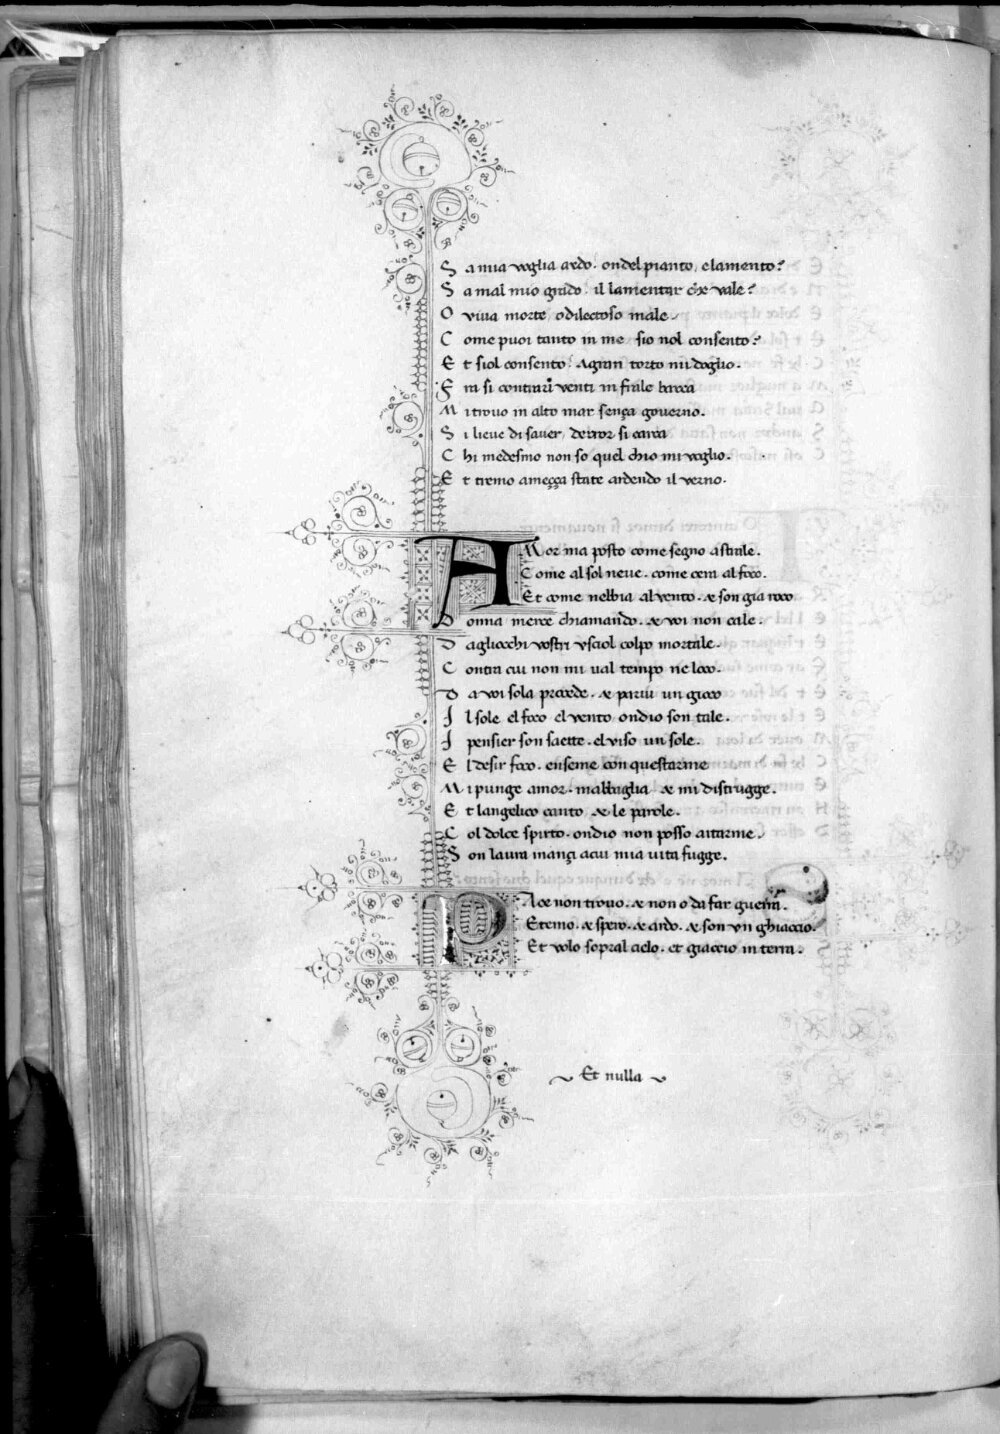 S a mia voglia ardo. ondel pianto, elamento?
S a mal mio grado. il lamentar che vale?
O viva morte odilectoso male.
C ome puoi tanto in me sio nol consento?
E t siol consento. Agran torto mi doglio.
F ra si contrari venti in fraile barca
M i trovo in alto mar sença governo.
S i lieve di saver, deror si carca
C hi medesmo non so quel chio mi voglio.
E t tremo ameçça state ardendo il verno.
A Mor ma posto come segno astrale.
C ome al sol neve. come cera al foco.
Et come nebbia al vento. & son gia roco
D onna merce chiamando. & voi non cale.
D agliocchi vostri vsciol colpo mortale.
C ontra cui non mi val tempo ne loco.
D a voi sola procede. & parvi un gioco
I l sole el foco el vento ondio son tale.
I pensier son saette. el viso un sole.
E l desir foco. enseme con questarme
M i punge amor. mabbaglia & mi distrugge.
E t langelico canto & le parole.
C ol dolce spirto. ondio non posso aitarme.
S on laura inançi acui mia vita fugge.
P Ace non trovo. & non o da far guerra.
E temo. & spero. & ardo. & son vn ghiaccio.
Et volo sopral cielo. et giaccio in terra.
Et nulla